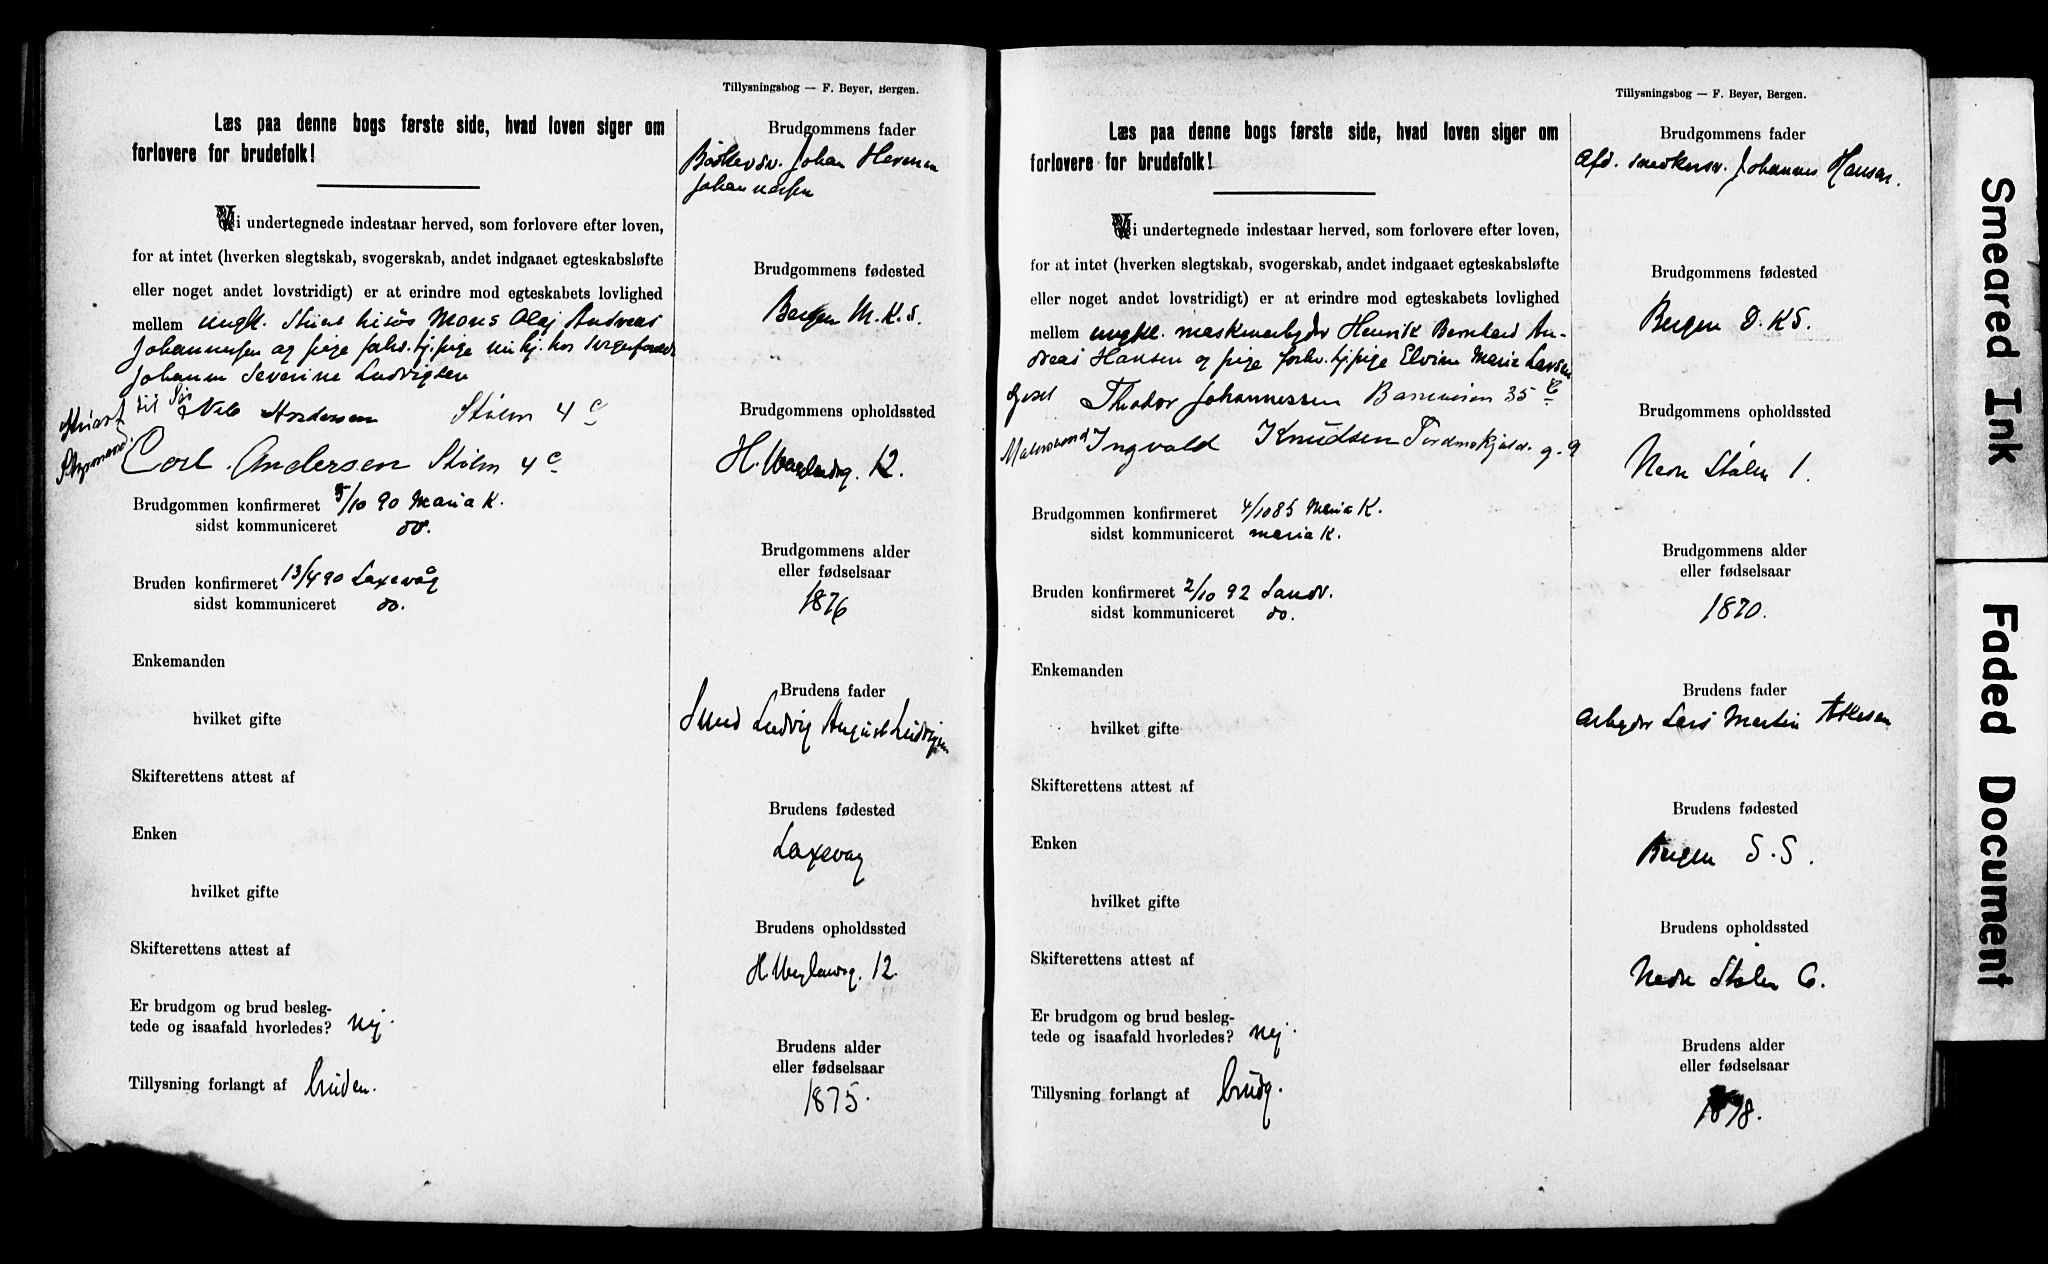 Tillysningsbog — F. Beyer, Bergen.
Læs paa denne bogs første side, hvad loven siger om
forlovere for brudefolk!
Vi undertegnede indestaar herved, som forlovere efter loven,
for at intet (hverken slegtskab, svogerskab, andet indgaaet egteskabsløfte
eller noget andet lovstridigt) er at erindre mod egteskabets lovlighed
mellem ungk. Stuert tilsøs Mons Olaj Andreas
Johannessen og pige forhv. tj.pige nu hj. hos
Johanne Severine Ludvigsen
Stuart til Søs Nils Andersen Stølen 4 c
Carl Andersen Stølen 4 c
Brudgommen konfirmeret 5/10 90 Maria K.
sidst kommuniceret do.
Bruden konfirmeret 13/4 90 Laxevåg
sidst kommuniceret do.
Enkemanden
hvilket gifte
Skifterettens attest af
Enken
hvilket gifte
Skifterettens attest af
Er brudgom og brud besleg-
tede og isaafald hvorledes? nej.
Tillysning forlangt af bruden.
Brudgommens fader
Bødkersv. Johan Herman
Johannessen
Brudgommens fødested
Bergen M. K. S.
Brudgommens opholdssted
H. 12.
Brudgommens alder
eller fødselsaar
1876
Brudens fader
Ludvig August Ludvigsen
Brudens fødested
Laxevag
Brudens opholdssted
H. 12.
Brudens alder
eller fødselsaar
1875.
Tillysningsbog — F. Beyer, Bergen.
Læs paa denne bogs første side, hvad loven siger om
forlovere for brudefolk!
Vi undertegnede indestaar herved, som forlovere efter loven,
for at intet (hverken slegtskab, svogerskab, andet indgaaet egteskabsløfte
eller noget andet lovstridigt) er at erindre mod egteskabets lovlighed
mellem ungkl. maskinarbejder Henrik Bernhard An-
dreas Hansen og pige forhv. tj.pige Elvine Marie Larsen
Theodor Johannessen 35 c
Ingvald Knudsen g. 9
Brudgommen konfirmeret 4/10 85 Maria K.
sidst kommuniceret Maria K.
Bruden konfirmeret 2/10 92 Sandv.
sidst kommuniceret do.
Enkemanden
hvilket gifte
Skifterettens attest af
Enken
hvilket gifte
Skifterettens attest af
Er brudgom og brud besleg-
tede og isaafald hvorledes? nej.
Tillysning forlangt af brudg.
Brudgommens fader
Afd. snedkersv. Johannes Hansen.
Brudgommens fødested
Bergen D. K S.
Brudgommens opholdssted
Nedre Stølen 1.
Brudgommens alder
eller fødselsaar
1870.
Brudens fader
Arbejder Lars Martin
Brudens fødested
Bergen S. S.
Brudens opholdssted
Nedre Stølen 6.
Brudens alder
eller fødselsaar
1878.
Smeared Ink
Faded Document